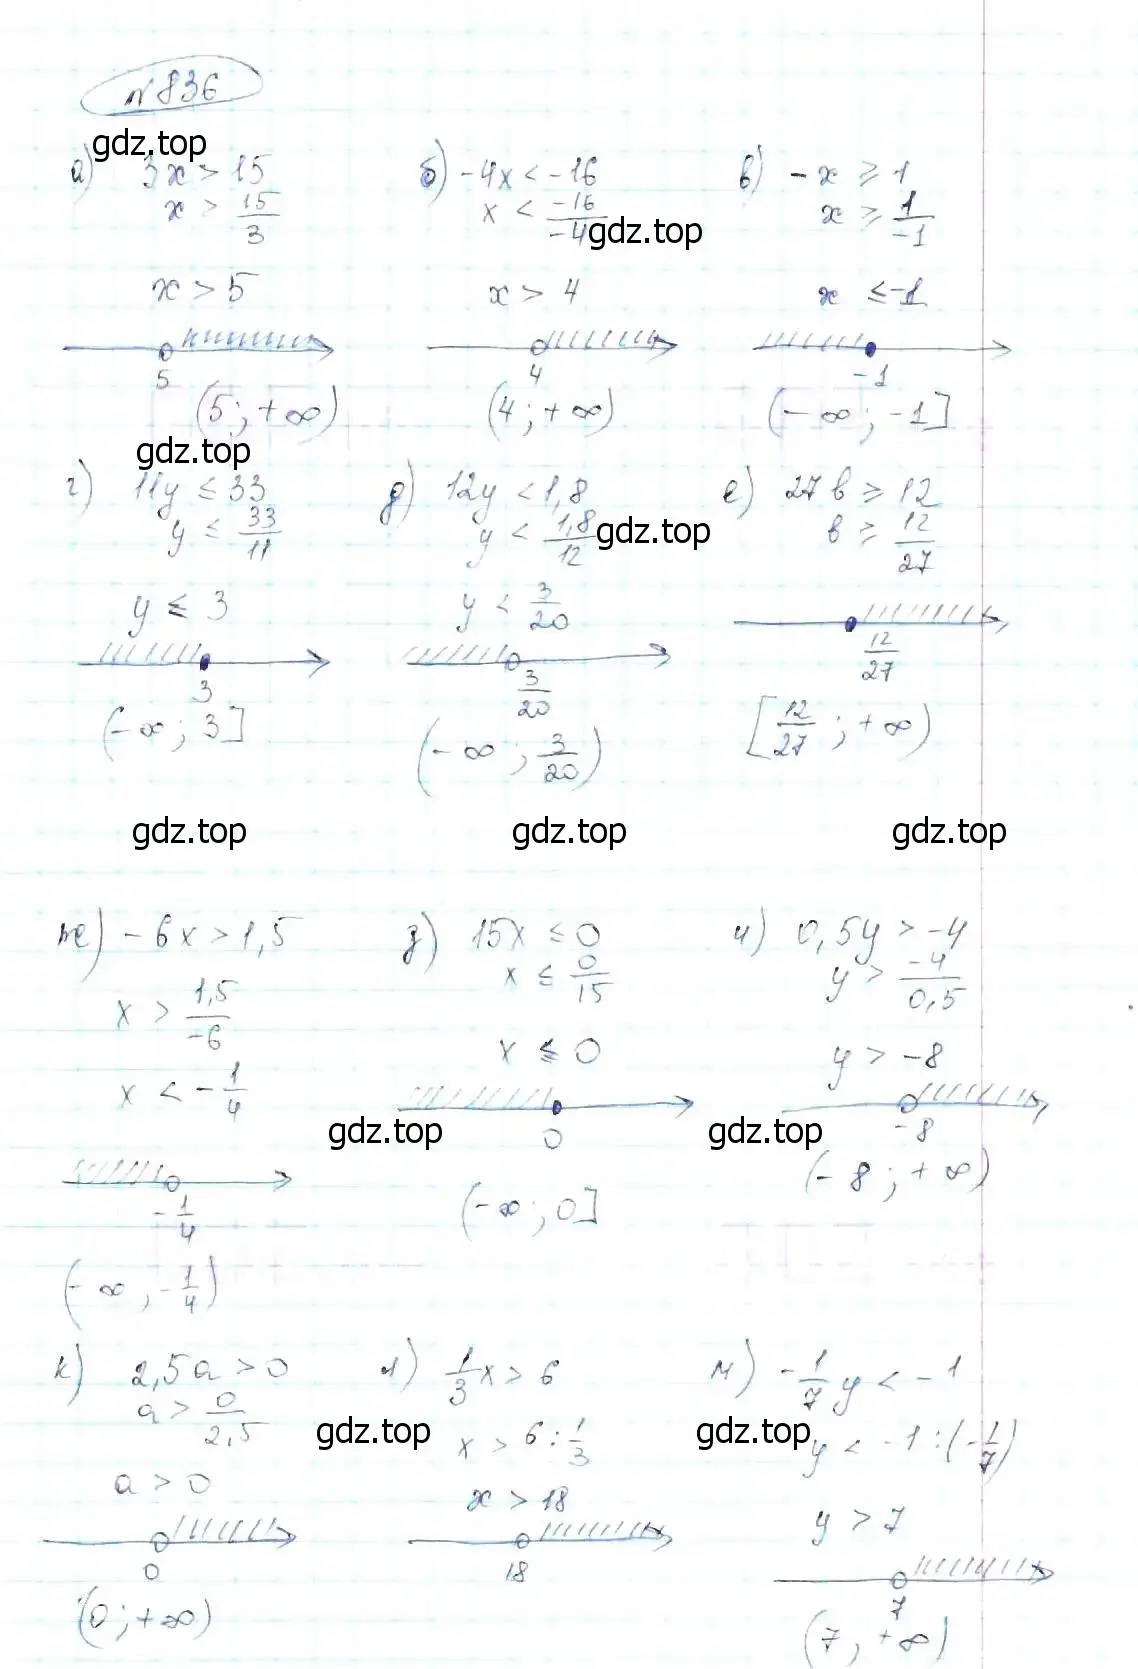 №836
gdz.top
а) 3x > 15
x > 15/3
x > 5
5
(5; +∞)
б) -4x < -16
x < -16/-4
gdz.top
x > 4
4
(4; +∞)
в) -x ≥ 1
x ≥ 1/-1
x ≤ -1
-1
(-∞; -1]
gdz.top
г) 11y ≤ 33
y ≤ 33/11
y ≤ 3
3
(-∞; 3]
д) 12y < 1,8
y < 1,8/12
gdz.top
y < 3/20
3/20
(-∞; 3/20)
е) 27b ≥ 12
b ≥ 12/27
12/27
[12/27; +∞)
gdz.top
gdz.top
gdz.top
ж) -6x > 1,5
x > 1,5/-6
x < -1/4
-1/4
(-∞; -1/4)
з) 15x ≤ 0
x ≤ 0/15
x ≤ 0
0
gdz.top
(-∞; 0]
и) 0,5y > -4
y > -4/0,5
y > -8
-8
gdz.top
(-8; +∞)
к) 2,5a > 0
a > 0/2,5
a > 0
0
(0; +∞)
л) 1/3x > 6
gdz.top
x > 6 : 1/3
x > 18
18
м) -1/7y < -1
gdz.top
y < -1 : (-1/7)
y > 7
7
(7; +∞)